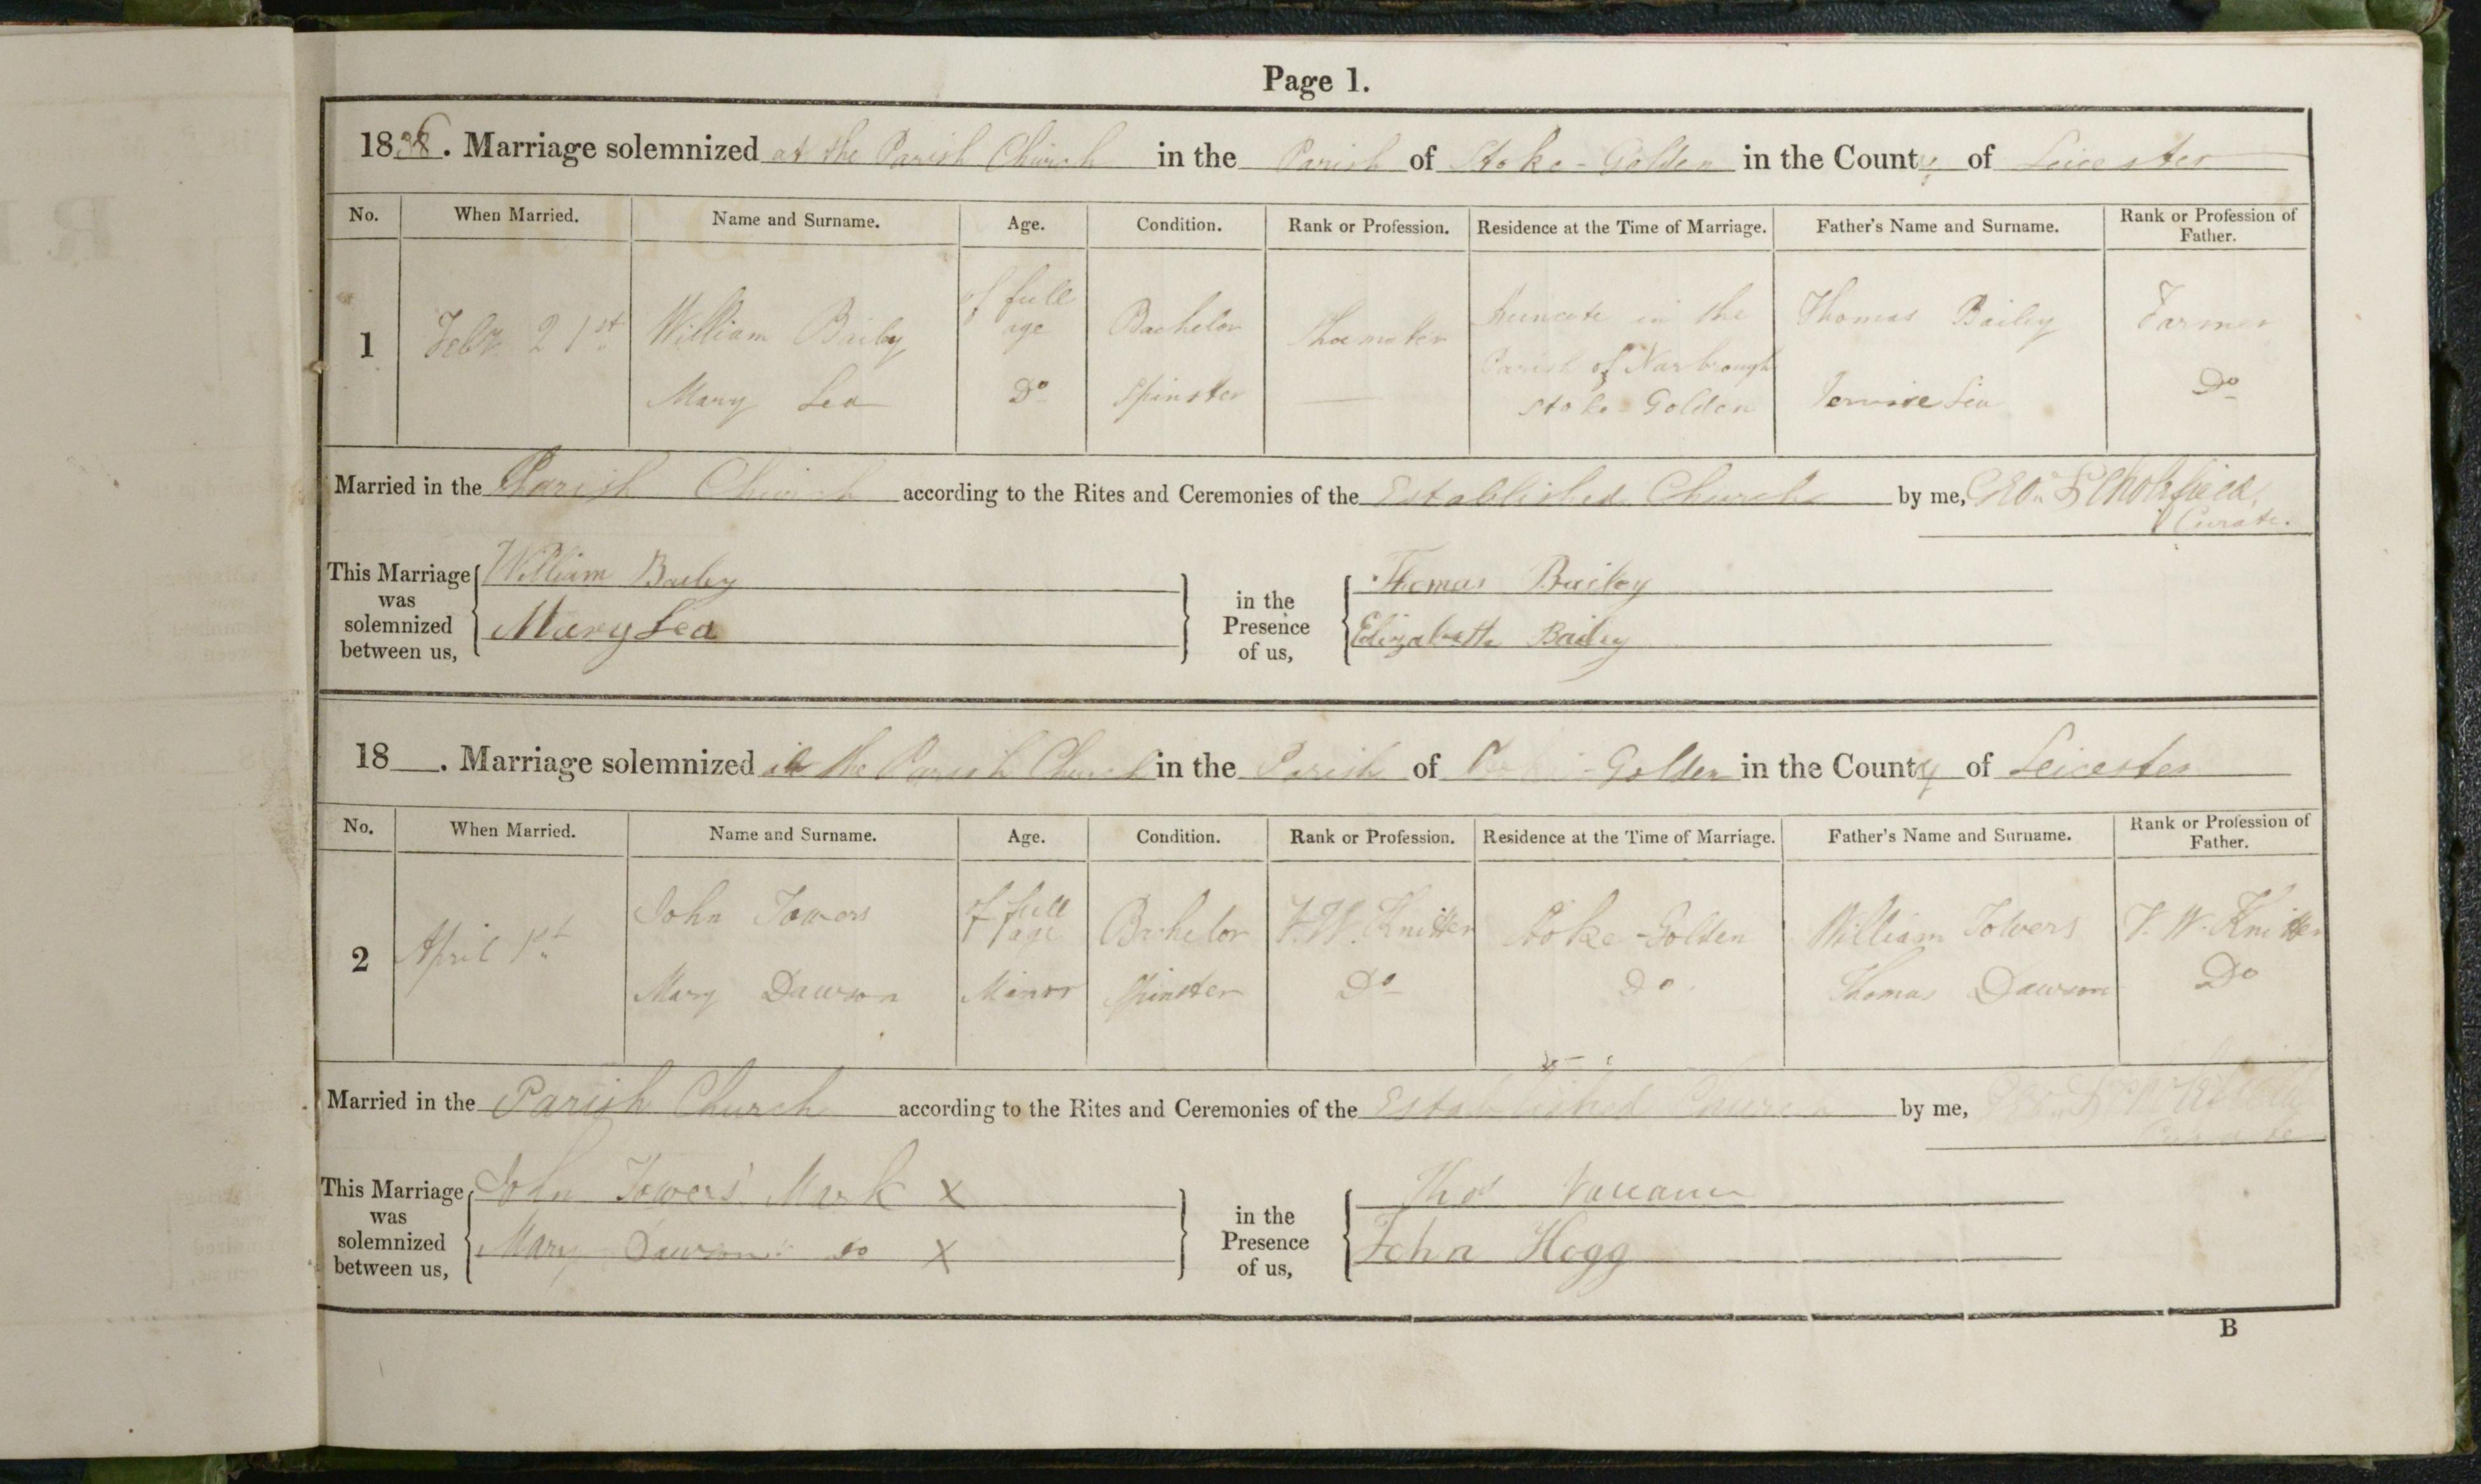 Page 1.
1838. Marriage solemnized at the Parish Church in the Parish of Stoke-Golden in the County of Leicester
No. When Married. Name and Surname. Age. Condition. Rank or Profession. Residence at the Time of Marriage. Father's Name and Surname. Rank or Profession of Father.
1 Feby. 21st William Bailey of full age Bachelor Shoemaker in the Parish of Narbrough Thomas Bailey Farmer
Mary Lea Do Spinster — Stoke-Golden Lea Do
Married in the Parish Church according to the Rites and Ceremonies of the Established Church by me, Geo. Scholefield,
Curate.
This Marriage was solemnized between us, William Bailey
Mary Lea
in the Presence of us, Thomas Bailey
Elizabeth Bailey
18 . Marriage solemnized at the Parish Church in the Parish of Golden in the County of Leicester
No. When Married. Name and Surname. Age. Condition. Rank or Profession. Residence at the Time of Marriage. Father's Name and Surname. Rank or Profession of Father.
2 April 1st John Towers of full age Bachelor F.W. Knitter Stoke-Golden William Towers F.W. Knitter
Mary Dawson Minor Spinster Do Do Thomas Dawson Do
Married in the Parish Church according to the Rites and Ceremonies of the Established Church by me,
Curate
This Marriage was solemnized between us, John Towers' Mark X
Mary Dawson's Do X
in the Presence of us, Thos
John Hogg
B